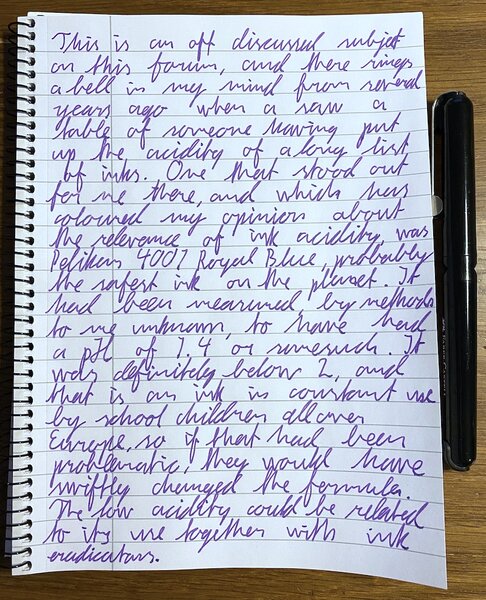 This is an oft discussed subject
on this forum, and there rings
a bell in my mind from several
years ago when a saw a
table of someone having put
up the acidity of a long list
of inks. One that stood out
for me there, and which has
coloured my opinion about
the relevance of ink acidity, was
Pelikan 4001 Royal Blue, probably
the safest ink on the planet. It
had been measured, by methods
to me unknown, to have had
a pH of 1.4 or somesuch. It
was definitely below 2, and
that is an ink in constant use
by school children all over
Europe, so if that had been
problematic, they would have
swiftly changed the formula.
The low acidity could be related
to its use together with ink
eradicators.